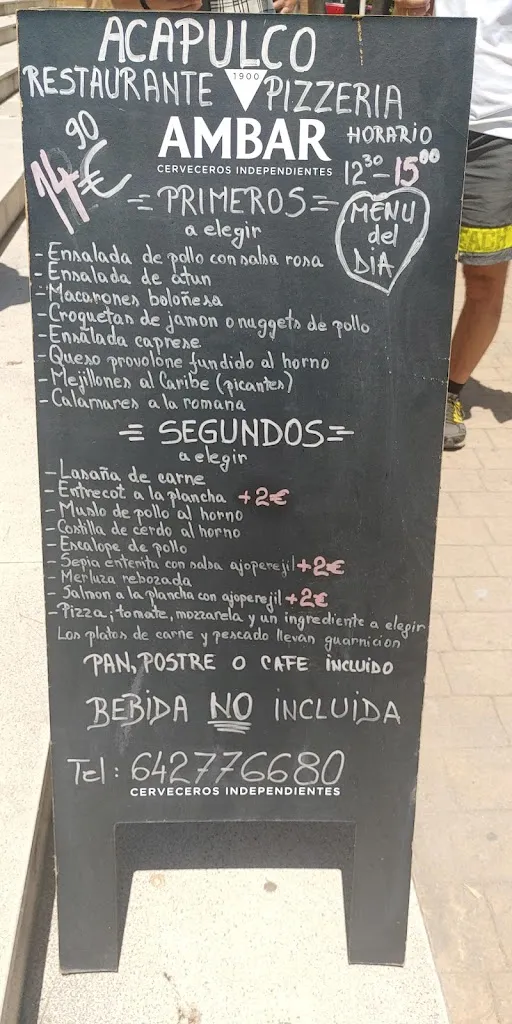 ACAPULCO
RESTAURANTE PIZZERIA
1900
AMBAR
CERVECEROS INDEPENDIENTES
14 90 €
HORARIO
12 30 - 15 00
MENU
del
DIA
= PRIMEROS =
a elegir
- Ensalada de pollo con salsa rosa
- Ensalada de atun
- Macarones boloñesa
- Croquetas de jamon o nuggets de pollo
- Ensalada caprese
- Queso provolone fundido al horno
- Mejillones al Caribe (picantes)
- Calamares a la romana
= SEGUNDOS =
a elegir
- Lasaña de carne
- Entrecot a la plancha +2€
- Muslo de pollo al horno
- Costilla de cerdo al horno
- Escalope de pollo
- Sepia enterita con salsa ajoperejil +2€
- Merluza rebozada
- Salmon a la plancha con ajoperejil +2€
- Pizza; tomate, mozzarela y un ingrediente a elegir
Los platos de carne y pescado llevan guarnicion
PAN, POSTRE O CAFE INCLUIDO
BEBIDA NO INCLUIDA
Tel: 642776680
CERVECEROS INDEPENDIENTES